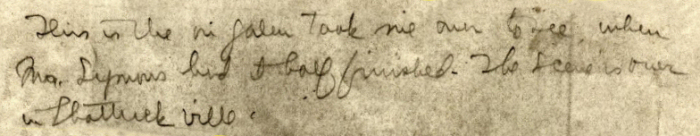 This is the Galen took me over to see when
Mrs. Symons had it half finished. The scene is over
in Shattuckville.